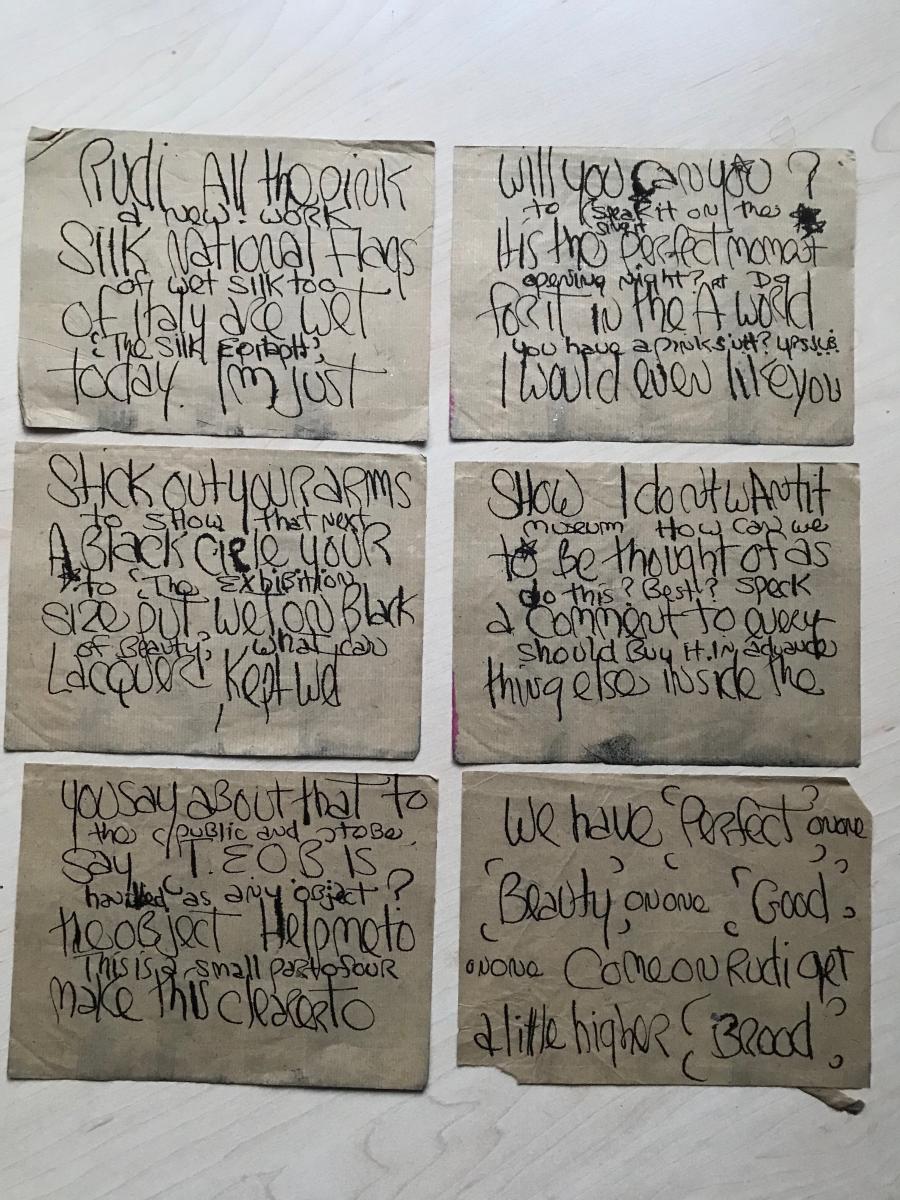 Rudi All the pink
a new. work
Silk National Flags
of wet silk too
of Italy are wet
'The Silk Epitaph',
today. I'm just
will you can you ?
to (speak it on the
silver
It is the perfect moment
opening night? at Dg
for it in the A world
you have a pink suit?
I would even like you
Stick out your arms
to show that next
A Black circle your
to 'The Exhibition
size put wet on Black
of Beauty', what can
Lacquer Kept wet
Show I don't want it
museum How can we
to Be thought of as
do this? Best? speck
a Comment to every
should Buy it. In advance
thing else inside the
you say about that to
the (public and) to Be
say T.E O B IS
handled as any object ?
the object Help me to
This is a small part of our
make this clearer to
We have 'Perfect' on one
'Beauty' on one 'Good'
on one Come on Rudi get
a little higher 'Brood'